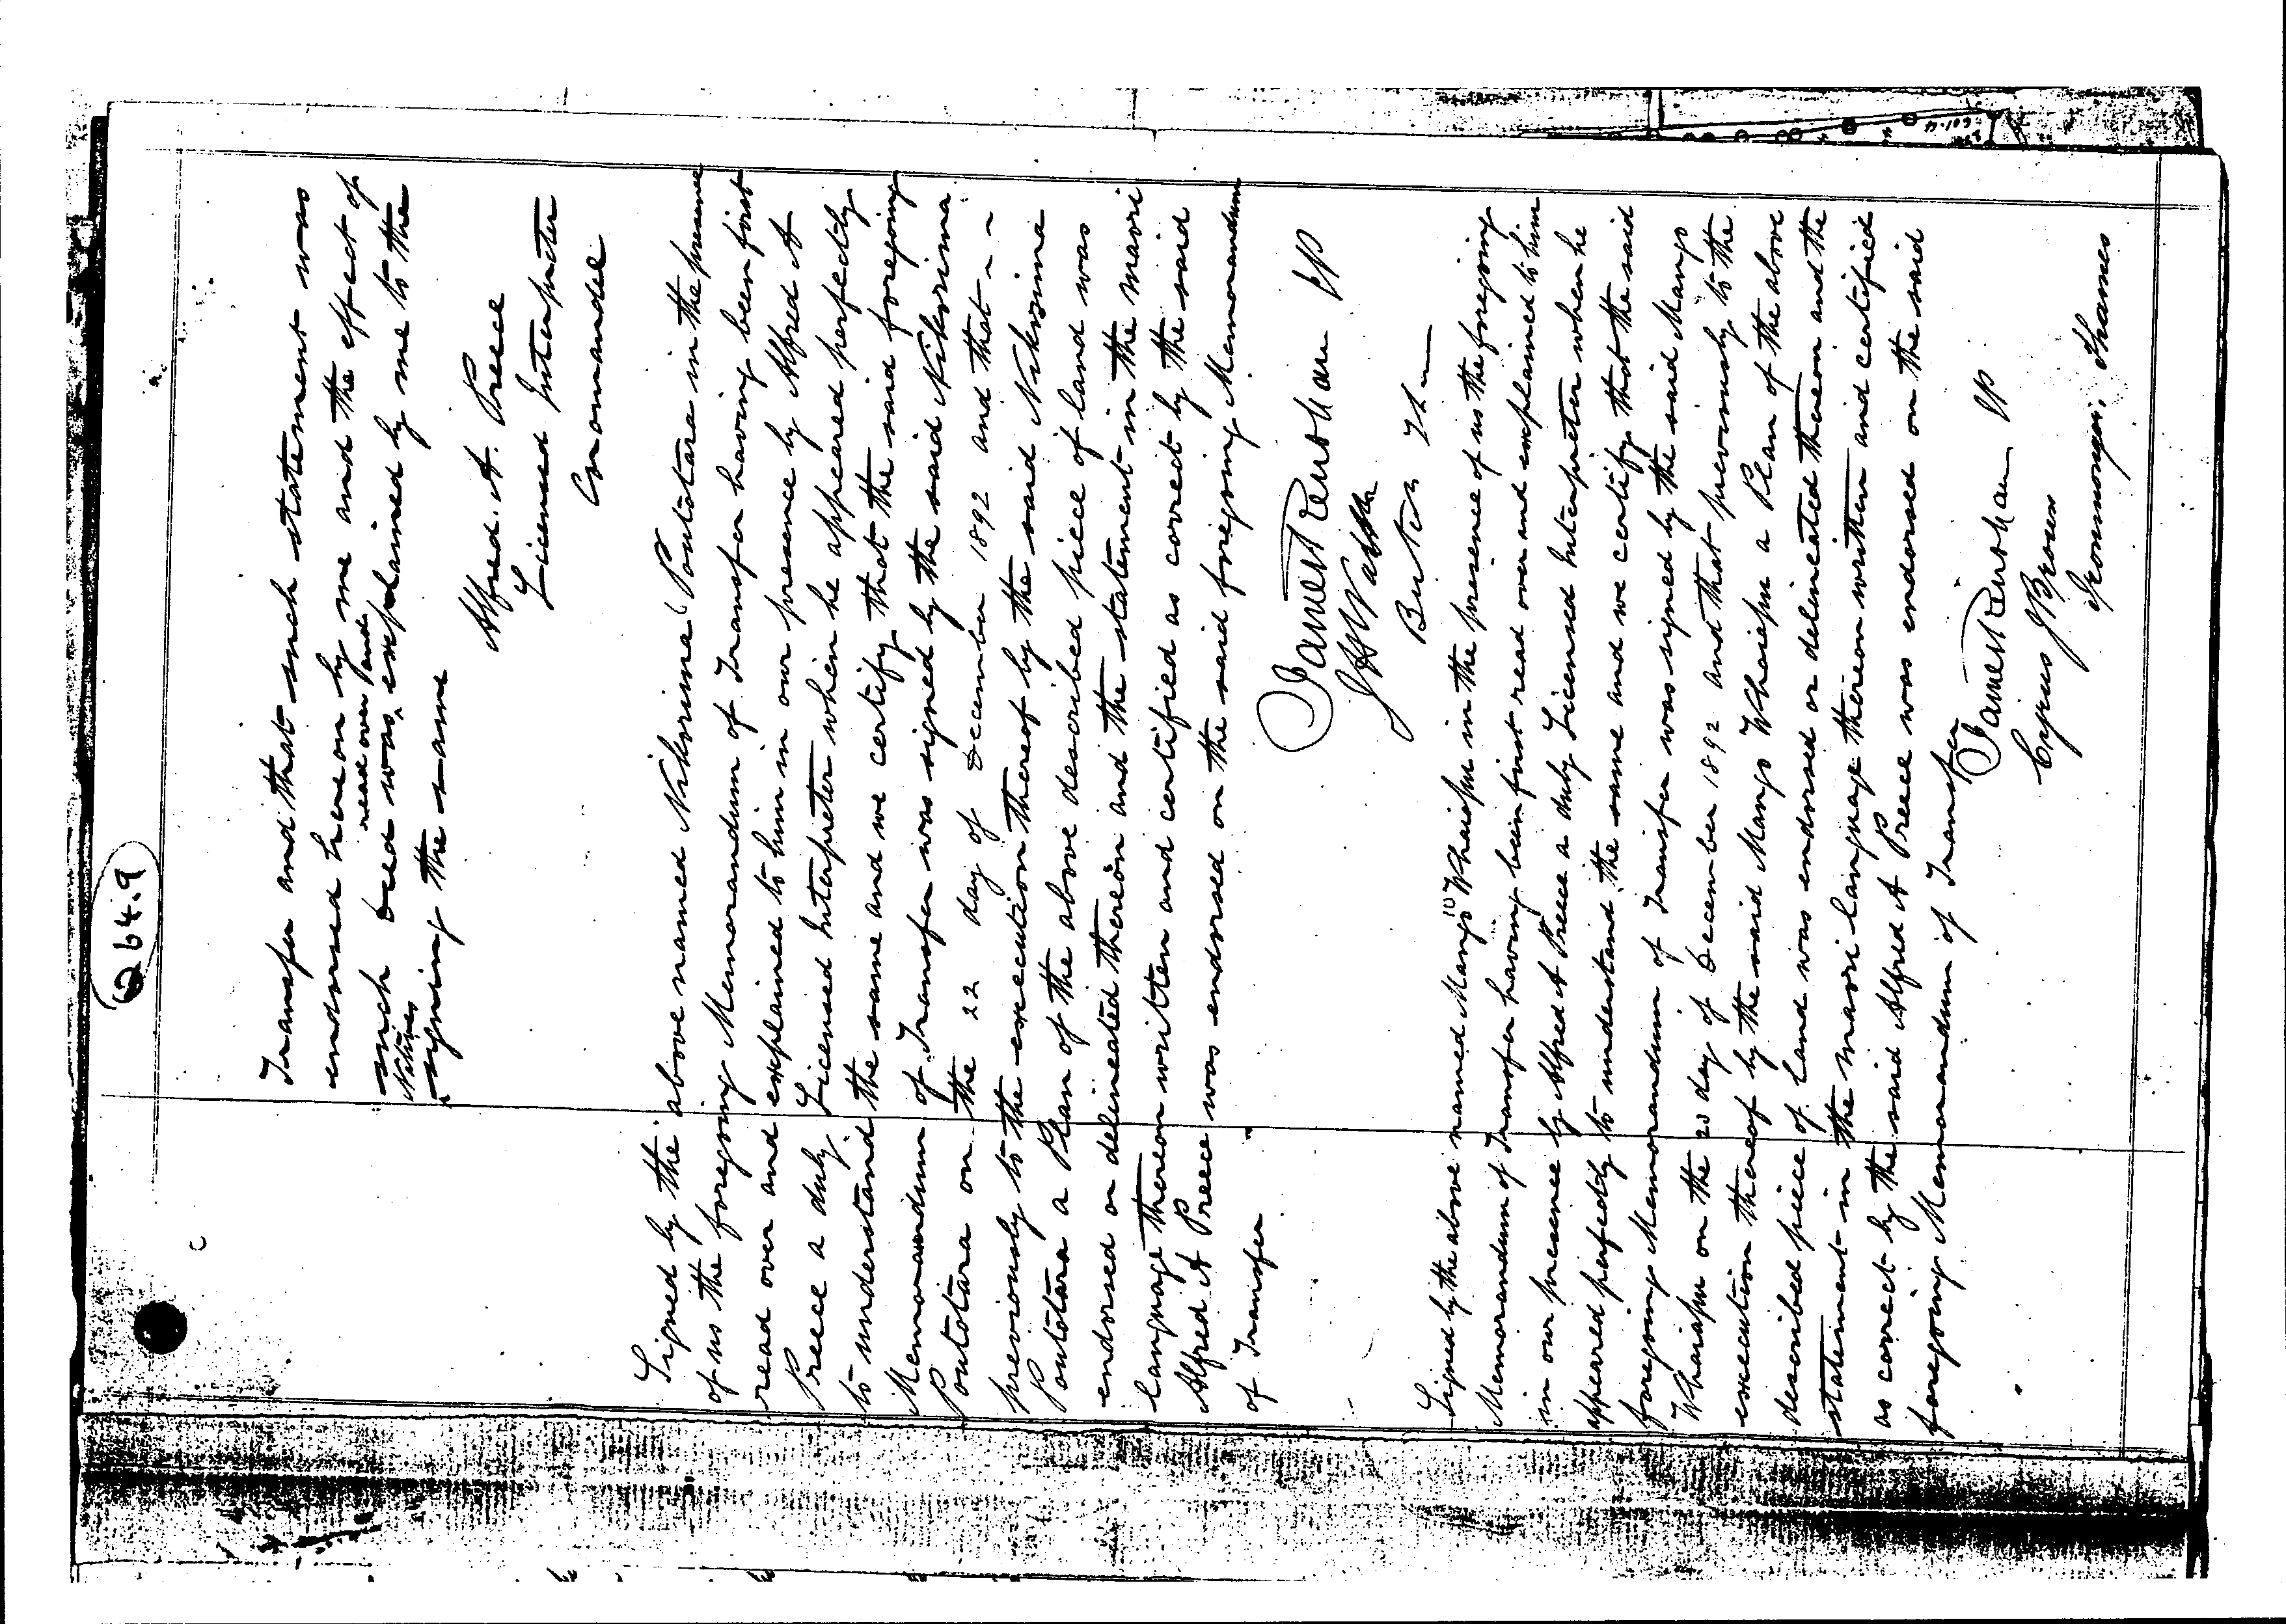 64.9
Transfer and that such statement was
endorsed hereon by me and the effect of
such Deed was read over and explained by me to the
Natives signing the same
Alfred. A. Preece
Licensed Interpreter
Coromandel
Signed by the above named Nikorima Poutotara in the presence
of us the foregoing Memorandum of Transfer having been first
read over and explained to him in our presence by Alfred A
Preece a duly Licensed Interpreter when he appeared perfectly
to understand the same and we certify that the said foregoing
Memorandum of Transfer was signed by the said Nikorima
Poutotara on the 22 day of December 1892 and that
previously to the execution thereof by the said Nikorima
Poutotara a Plan of the above described piece of land was
endorsed or delineated thereon and the statement in the maori
language thereon written and certified as correct by the said
Alfred A Preece was endorsed on the said foregoing Memorandum
of Transfer
James Renshaw JP
Signed by the above named Mango Whaiapu in the presence of us the foregoing
Memorandum of Transfer having been first read over and explained to him
in our presence by Alfred A Preece a duly Licensed Interpreter when he
appeared perfectly to understand the same and we certify that the said
foregoing Memorandum of Transfer was signed by the said Mango
Whaiapu on the 20 day of December 1892 and that previously to the
execution thereof by the said Mango Whaiapu a Plan of the above
described piece of land was endorsed or delineated thereon and the
statement in the maori language thereon written and certified
as correct by the said Alfred A Preece was endorsed on the said
foregoing Memorandum of Transfer
James Renshaw JP
Cyrus J Brown
Ironmonger, Thames